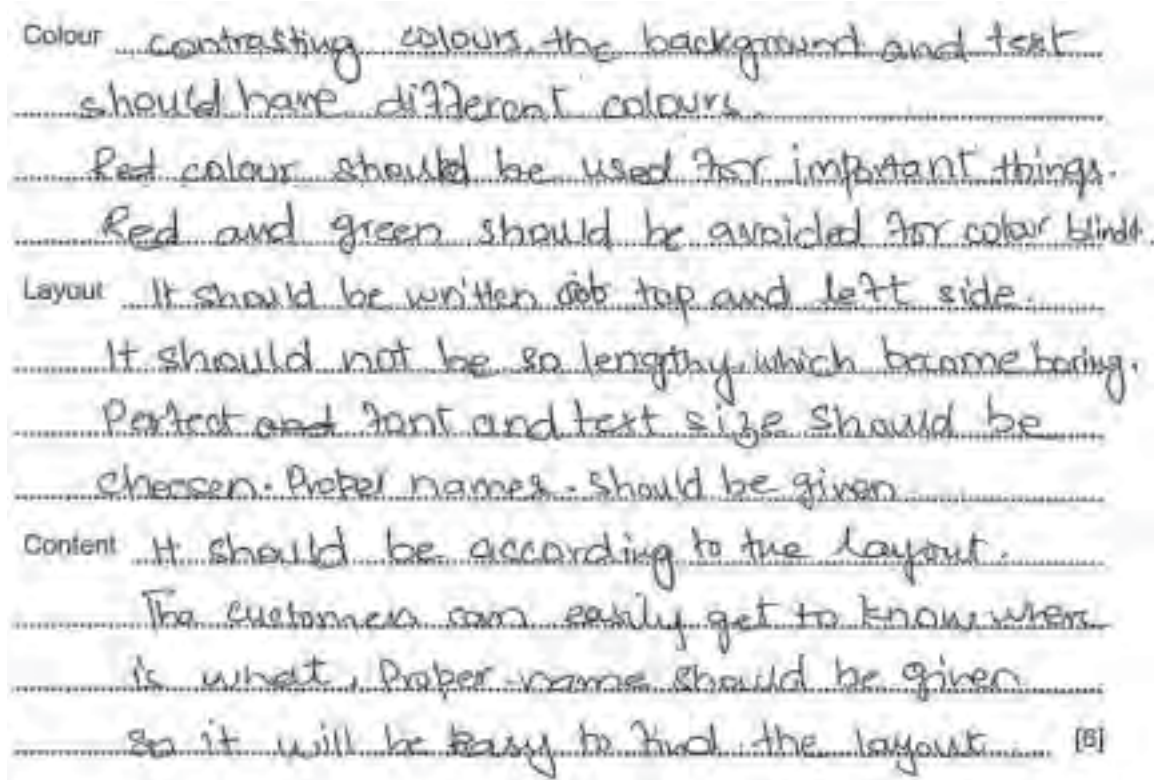 Colour contrasting colours, the background and text
should have different colours.
Red colour should be used for important things.
Red and green should be avoided for colour blinds.
Layout It should be written top and left side.
It should not be so lengthy, which become boring.
Perfect and font and text size should be
choosen. Proper names. should be given
Content It should be according to the layout.
The customers can easily get to know where
is what, Proper name should be given
so it will be easy to find the layout [6]